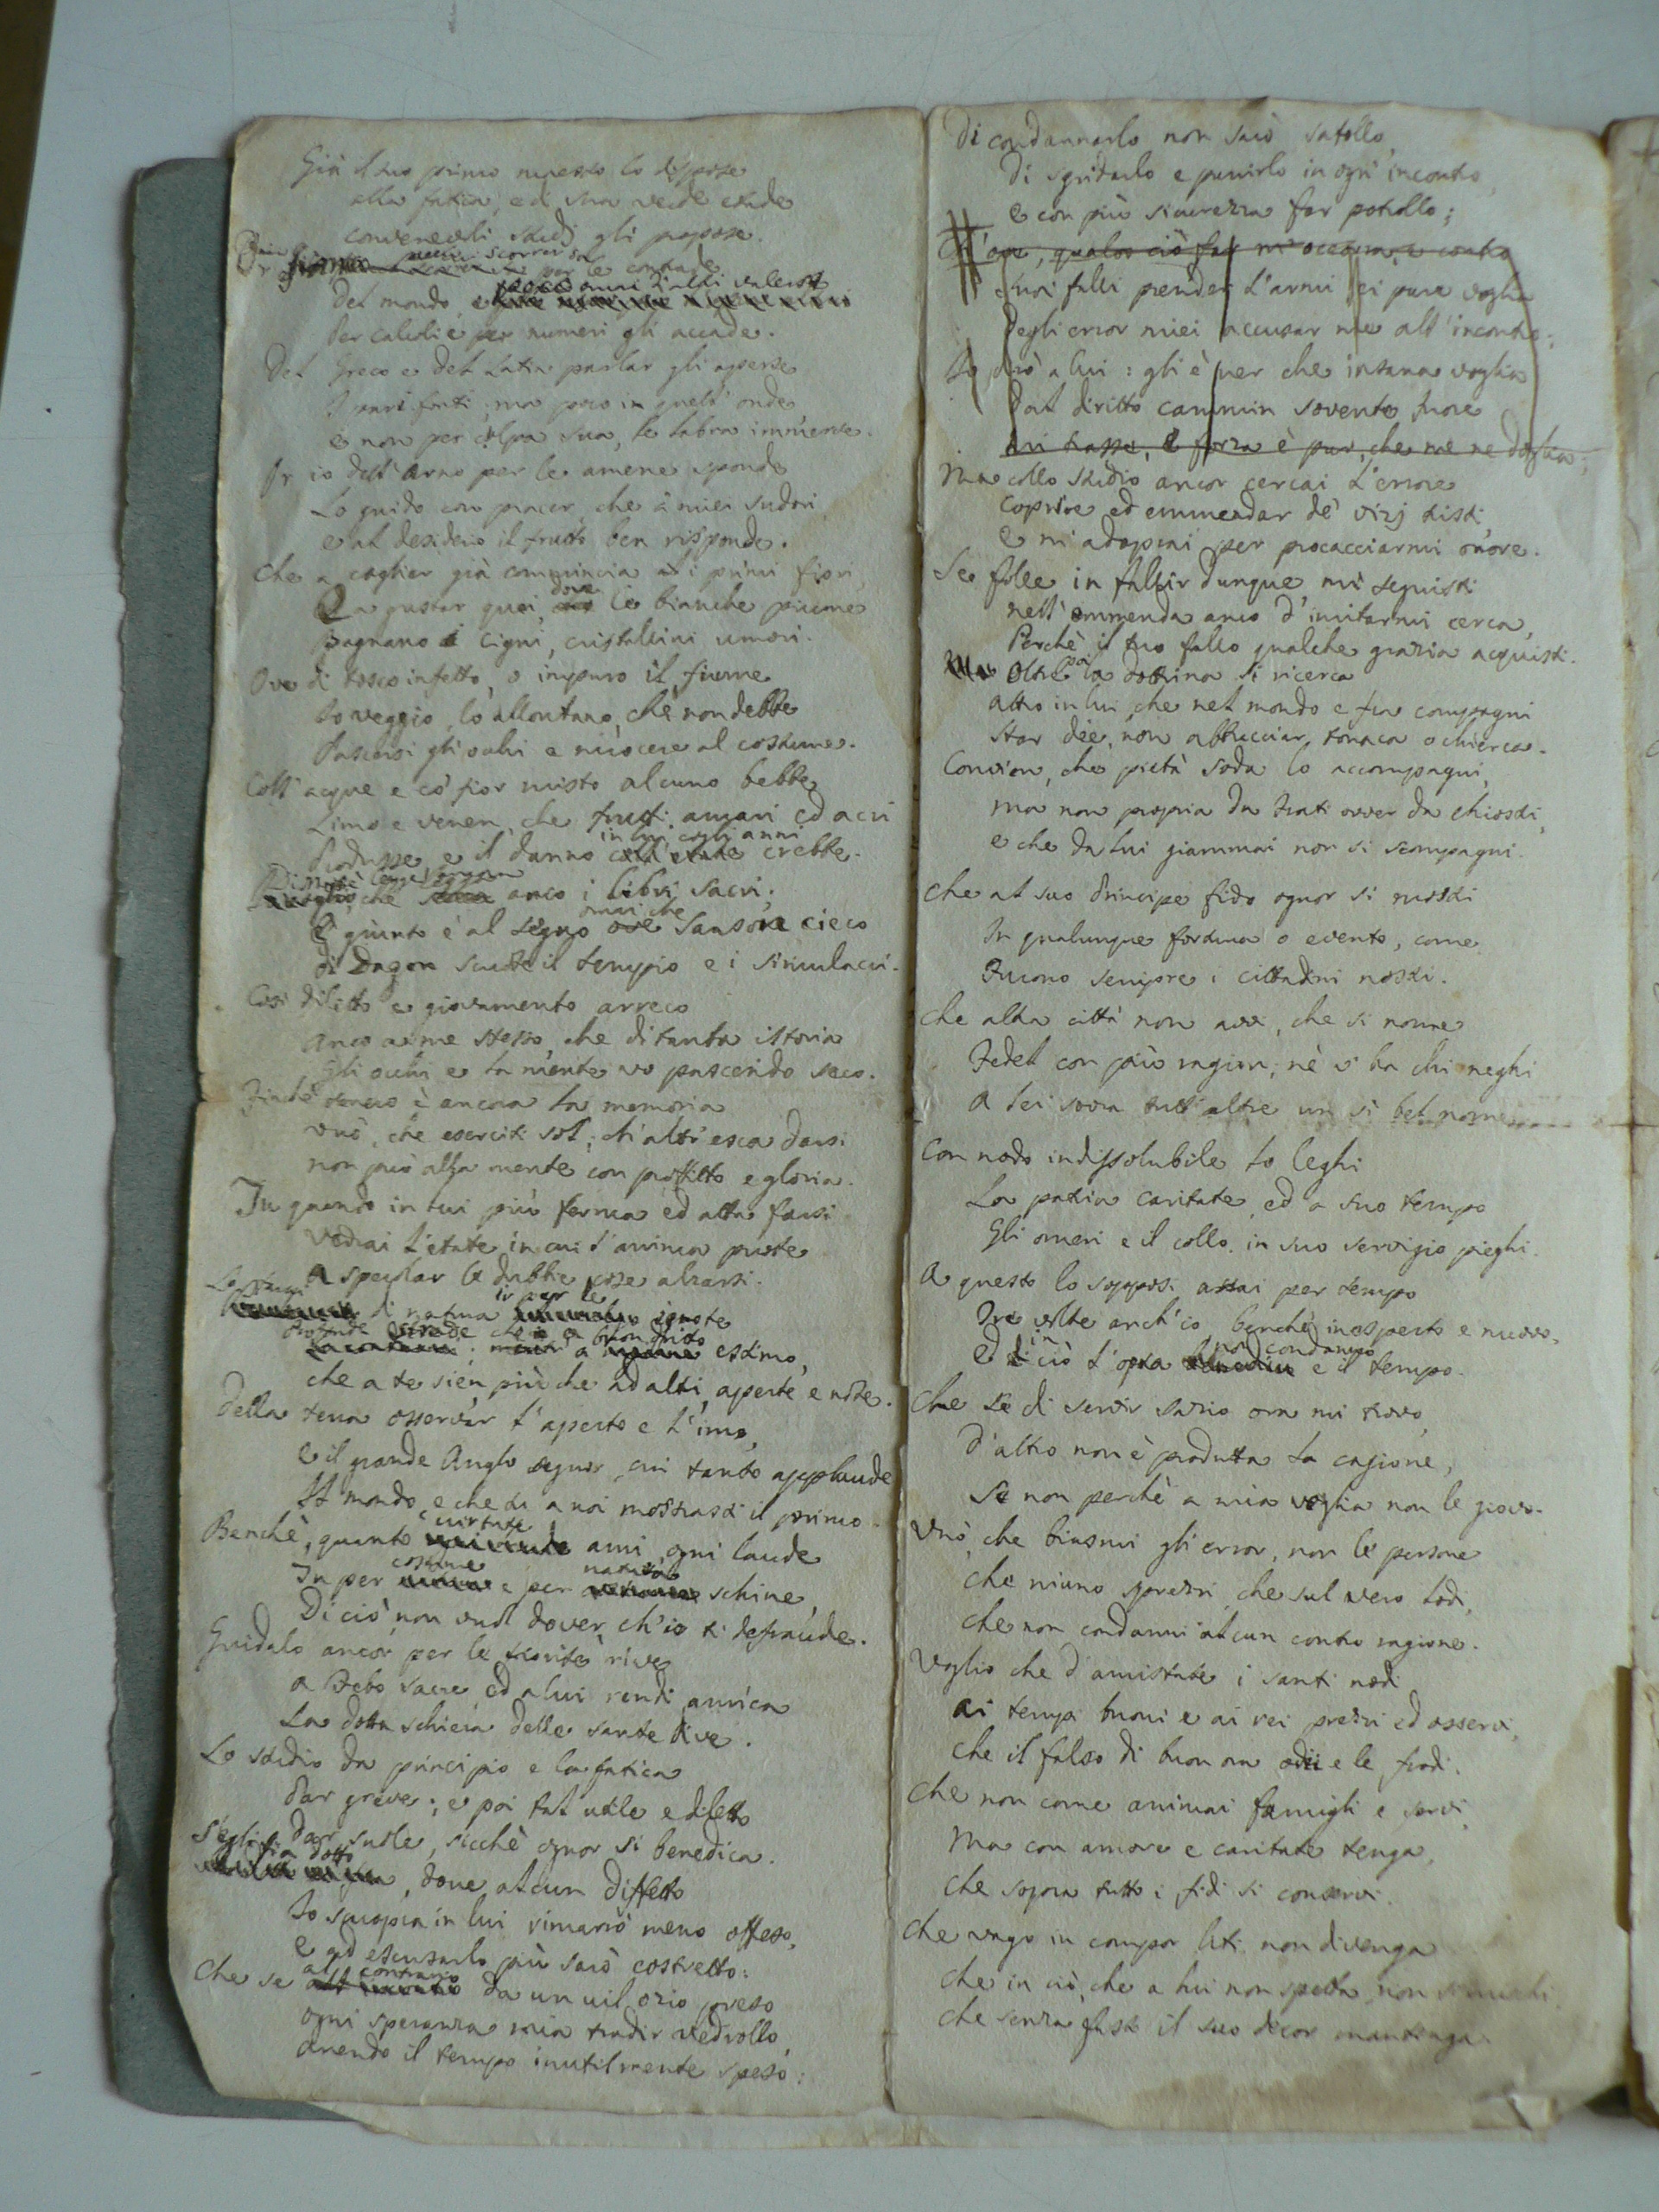 Già il suo primo maestro lo dispose
alla fatica, ed in sua verde etade
convenevoli studj gli propose.
scorrer sa
per le contrade
Del mondo, e
Per calcoli e per numeri gli accade.
Del Greco e del Latin parlar gli aperse
I puri fonti, ma poco in quell' onde,
e non per colpa sua, le labra immerse.
Or io dell' Arno per le amene sponde
Lo guido con piacer, che a' miei sudori,
e al desiderio il frutto ben risponde.
Che a coglier già comincia i primi fiori,
E a gustar quei, dove le bianche piume
Bagnano i cigni, cristallini umori.
Ove di tosco infetto, o impuro il fiume
Io veggio, lo allontano, che non debbe
Pascersi gli occhi e nuocere al costume.
Coll' acque e co' fior misto alcuno bebbe
Limo e venen, che frutti amari ed acri
in lui cogli anni
Produsse, e il danno coll' etate crebbe.
che anco i libri sacri;
omai che
E giunto è al segno ove Sansone cieco
di Dagon scuote il tempio e i simulacri.
Così diletto e giovamento arreco
Anco a me stesso, che di tanta istoria
Gli occhi e la mente vo pascendo seco.
Finchè tenera è ancora la memoria
vuò, che eserciti sol; ch'altr' esca darsi
non può alla mente con profitto e gloria.
Tu quando in lui più ferma ed atta farsi
Vedrai l'etate in cui l'anima puote
A specular le dubbie cose alzarsi.
ir per le
di natura ignote
strade che a buon dritto
a estimo,
che a te sien più che ad altri aperte e note.
Della terra osservar l'aperto e l'imo,
e il grande Anglo seguir, cui tanto applaude
Il mondo, e che tu a noi mostrasti il primo.
virtute
Benchè, quanto ami, ogni laude
costume natura
Tu per e per schive,
Di ciò non vuol dover, ch'io ti defraude.
Guidalo ancor per le fiorite rive
a Febo sacre, ed a lui rendi amica
La dotta schiera delle sante Dive.
Lo studio da principio e la fatica
Par greve; e poi tal utile e diletto
Dar suole, sicchè ognor si benedica.
S'egli fia dotto
, dove alcun difetto
Io scuopra in lui rimarrò meno offeso,
e ad escusarlo più sarò costretto:
al contrario
Che se all' incontro da un vil ozio preso
ogni speranza mia tradir vedrollo,
avendo il tempo inutilmente speso:
Di condannarlo non sarò satollo,
Di sgridarlo e punirlo in ogni incontro,
e con più sicurezza far potrollo;
Ch'ove, qualor ciò far m'occorra, e contro
suoi falli prender l'armi, ei pure voglia
Degli error miei accusar me all' incontro;
Io dirò a lui: gli è ver che insana voglia
Dal diritto cammin sovente fuore
mi trasse, e forza è pur, che me ne doglia;
Ma collo studio ancor cercai l'errore
Coprire ed emmendar de' vizj tristi,
E m'adoprai per procacciarmi onore.
Se folle in fallir dunque mi seguisti
nell' emmenda anco d'imitarmi cerca,
Perchè il tuo fallo qualche grazia acquisti.
poi
Oltre la dottrina si ricerca
altro in lui, che nel mondo e fra compagni
Star dee, non abbracciar tonaca o chierca.
Convien, che pietà soda lo accompagni,
ma non propria da frati ovver da chiostri,
e che da lui giammai non si scompagni.
Che al suo Principe fido ognor si mostri
In qualunque fortuna o evento, come
Furono sempre i cittadini nostri.
Che altra città non avvi, che si nome
Fedel con più ragion; nè v'ha chi neghi
a lei sovra tutt' altre un sì bel nome.
Con nodo indissolubile lo leghi
La patria caritate, ed a suo tempo
Gli omeri e il collo in suo servigio pieghi.
A questo lo sopposi assai per tempo
Tre volte anch'io, benchè inesperto e nuovo,
non condanno
Ed in ciò l'opra e il tempo.
Che se di servir sazio ora mi trovo,
D'altro non è prodotta la cagione,
Se non perchè a mia voglia non le giovo.
Vuò, che biasmi gli error, non le persone
che niuno sprezzi, che sul vero lodi,
che non condanni alcun contro ragione.
Voglio che d'amistate i santi nodi
ai tempi buoni e ai rei prezzi ed osservi,
che il falso di buon ora odii e le frodi.
Che non come animai famigli e servi,
Ma con amore e caritate tenga,
che sopra tutto i fidi si conservi.
Che vago in compor liti non divenga
che in ciò, che a lui non spetta, non
che senza fasto il suo decor mantenga.